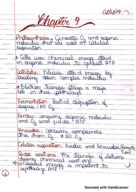 Chapter 9
Photosynthesis: Generates O2 and organic
molecules that are used in cellular
respiration
Cells use chemical energy stored
in organic molecules to generate ATP
Catabolic: Release stored energy by
breaking down complex molecules
Electron Transfer plays a major
role in these pathways
Fermentation: Partial degradation of
sugars NO O2
Aerobic: consumes organic molecules
and O2 and yields ATP
Anaerobic: consumes compounds
other than O2
Cellular respiration: Aerobic and Anaerobic
Redox reactions: The transfer of electrons
during chemical reactions
ATP
Scanned with CamScanner